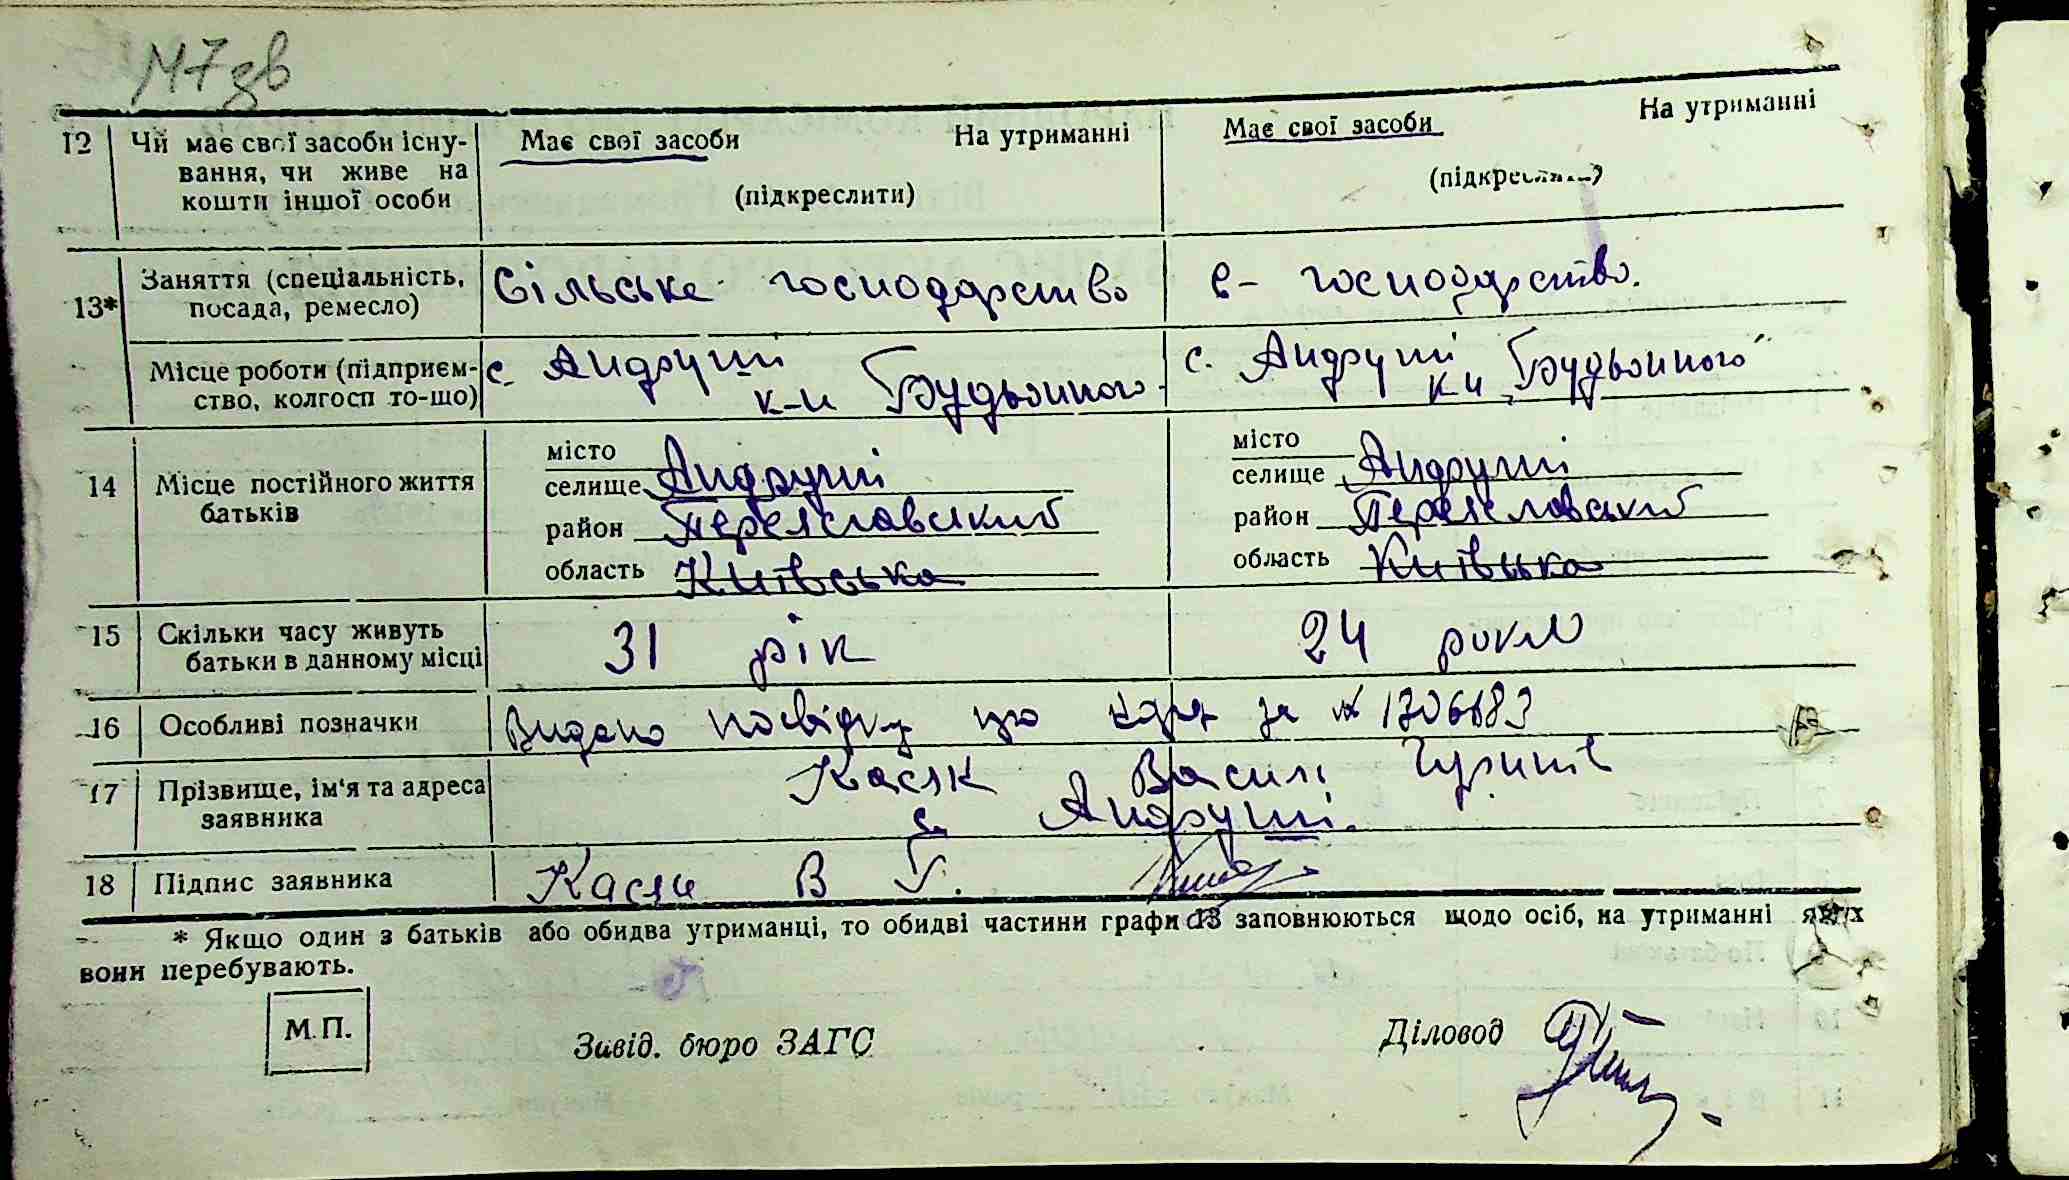 М7дв
12 Чи має свої засоби існу- Має свої засоби На утриманні Має свої засоби На утриманні
вання, чи живе на (підкреслити) (підкреслити)
кошти іншої особи
13* Заняття (спеціальність, Сільське господарство с-господарство.
посада, ремесло)
Місце роботи (підприєм- с. Андруші с. Андруші
ство, колгосп то-що) к-п Будьонного к-п Будьонного
14 Місце постійного життя місто місто
батьків селище Андруші селище Андруші
район Переяславский район Переяславський
область Київська область Київська
15 Скільки часу живуть 31 рік 24 роки
батьки в данному місці
16 Особливі позначки Видано посвідку цю за № 1306683
17 Прізвище, ім'я та адреса Касяк Василь
заявника с. Андруші.
18 Підпис заявника Касяк В Г.
* Якщо один з батьків або обидва утриманці, то обидві частини графи 13 заповнюються щодо осіб, на утриманні яких
вони перебувають.
М.П.
Завід. бюро ЗАГС Діловод